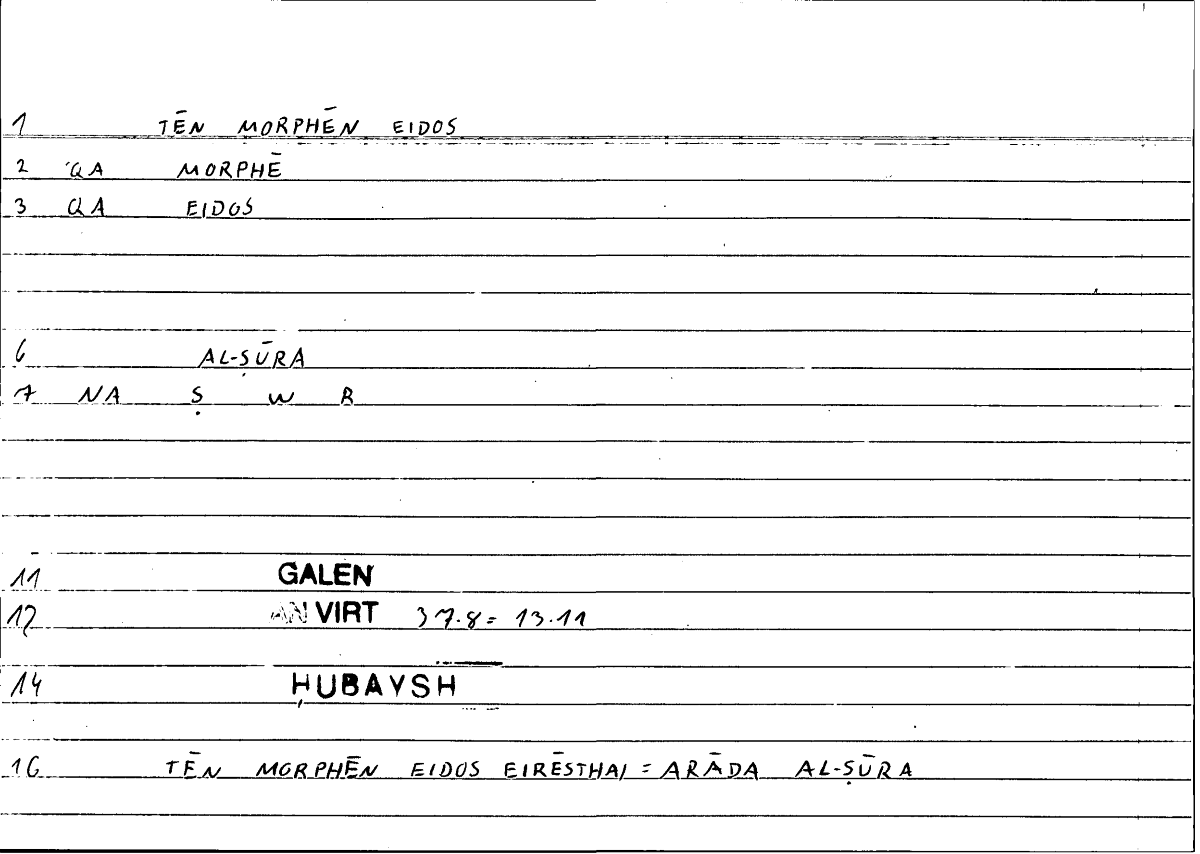 1 TĒN MORPHĒN EIDOS
2 QA MORPHĒ
3 QA EIDOS
6 AL-ṢŪRA
7 NA Ṣ W R
11 GALEN
12 AN VIRT 37.8 = 13.11
14 ḤUBAYSH
16 TĒN MORPHĒN EIDOS EIRĒSTHAI = ARĀDA AL-ṢŪRA